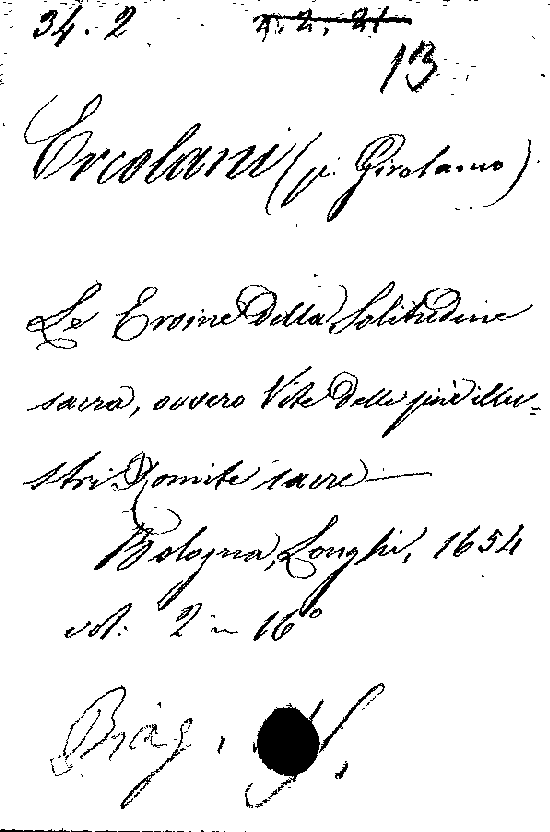 34. 2 2. 2. 21
13
Ercolani (p. Girolamo)
Le Eroine della Solitudine
sacra, ovvero Vite delle più illu=
stri Romite sacre
Bologna, Longhi, 1654
vol. 2 in 16°
Biag.